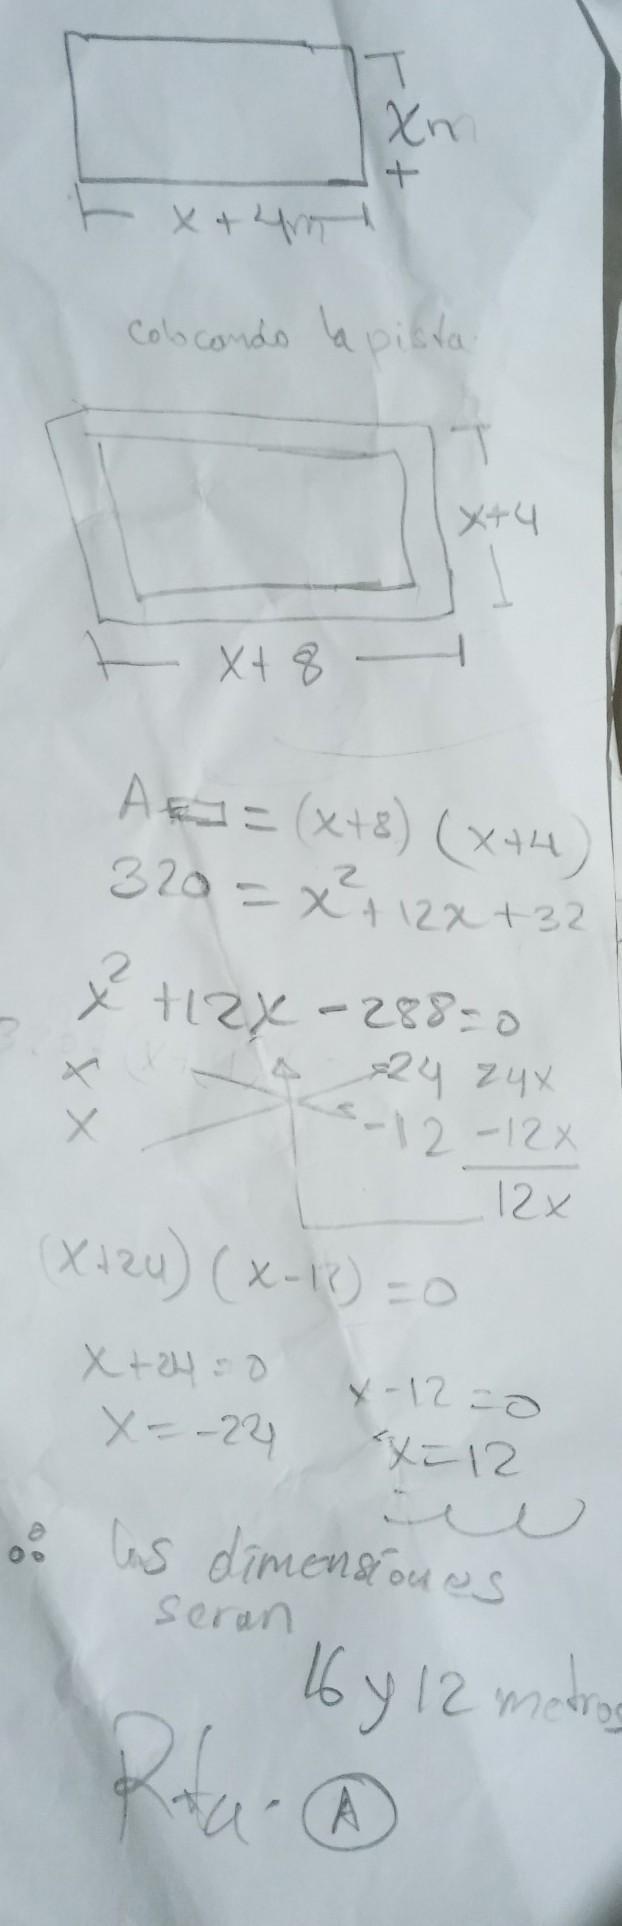 x m
x + 4m
colocando la pista
x+4
x+ 8
A▭ = (x+8) (x+4)
320 = x² + 12x + 32
x² + 12x - 288 = 0
x 24 24x
x -12 -12x
12x
(x+24) (x-12) = 0
x+24=0 x-12=0
x=-24 x=12
∴ las dimensiones
seran
16 y 12 metros
Rta. A